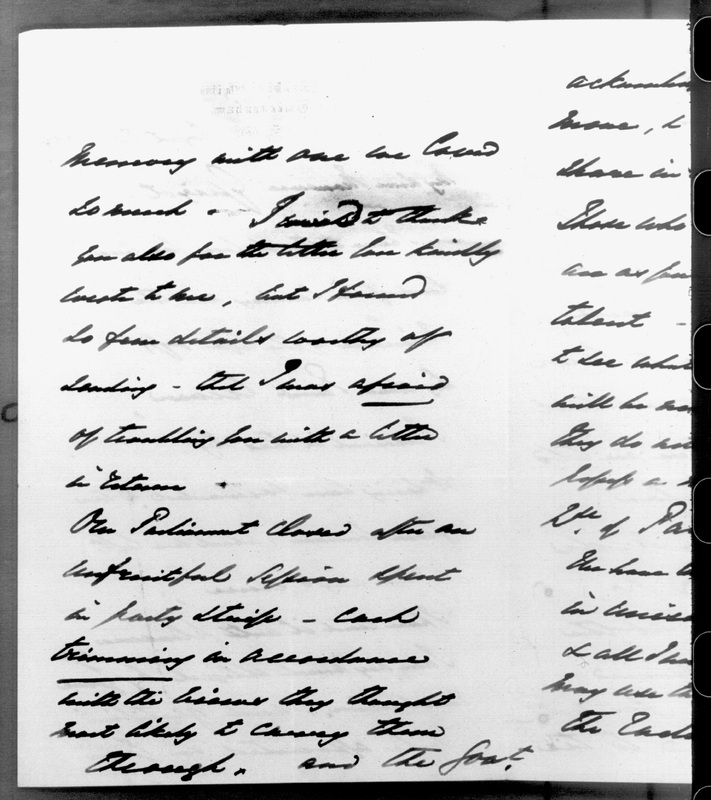 Memory with one we loved
so much. I wished to thank
you also for the letter you kindly
wrote to me, but I found
so few details worthy of
sending - that I was afraid
of troubling you with a letter
in return.
Our Parliament closed after an
unfruitful Session spent
in party strife - each
trimming in accordance
with the views they thought
most likely to carry them
through. and the Govt.
move, &
share in
Those who
are as few
talent -
to see whi
will be
they do not
of Par
We have
in
& all I
may use th
the